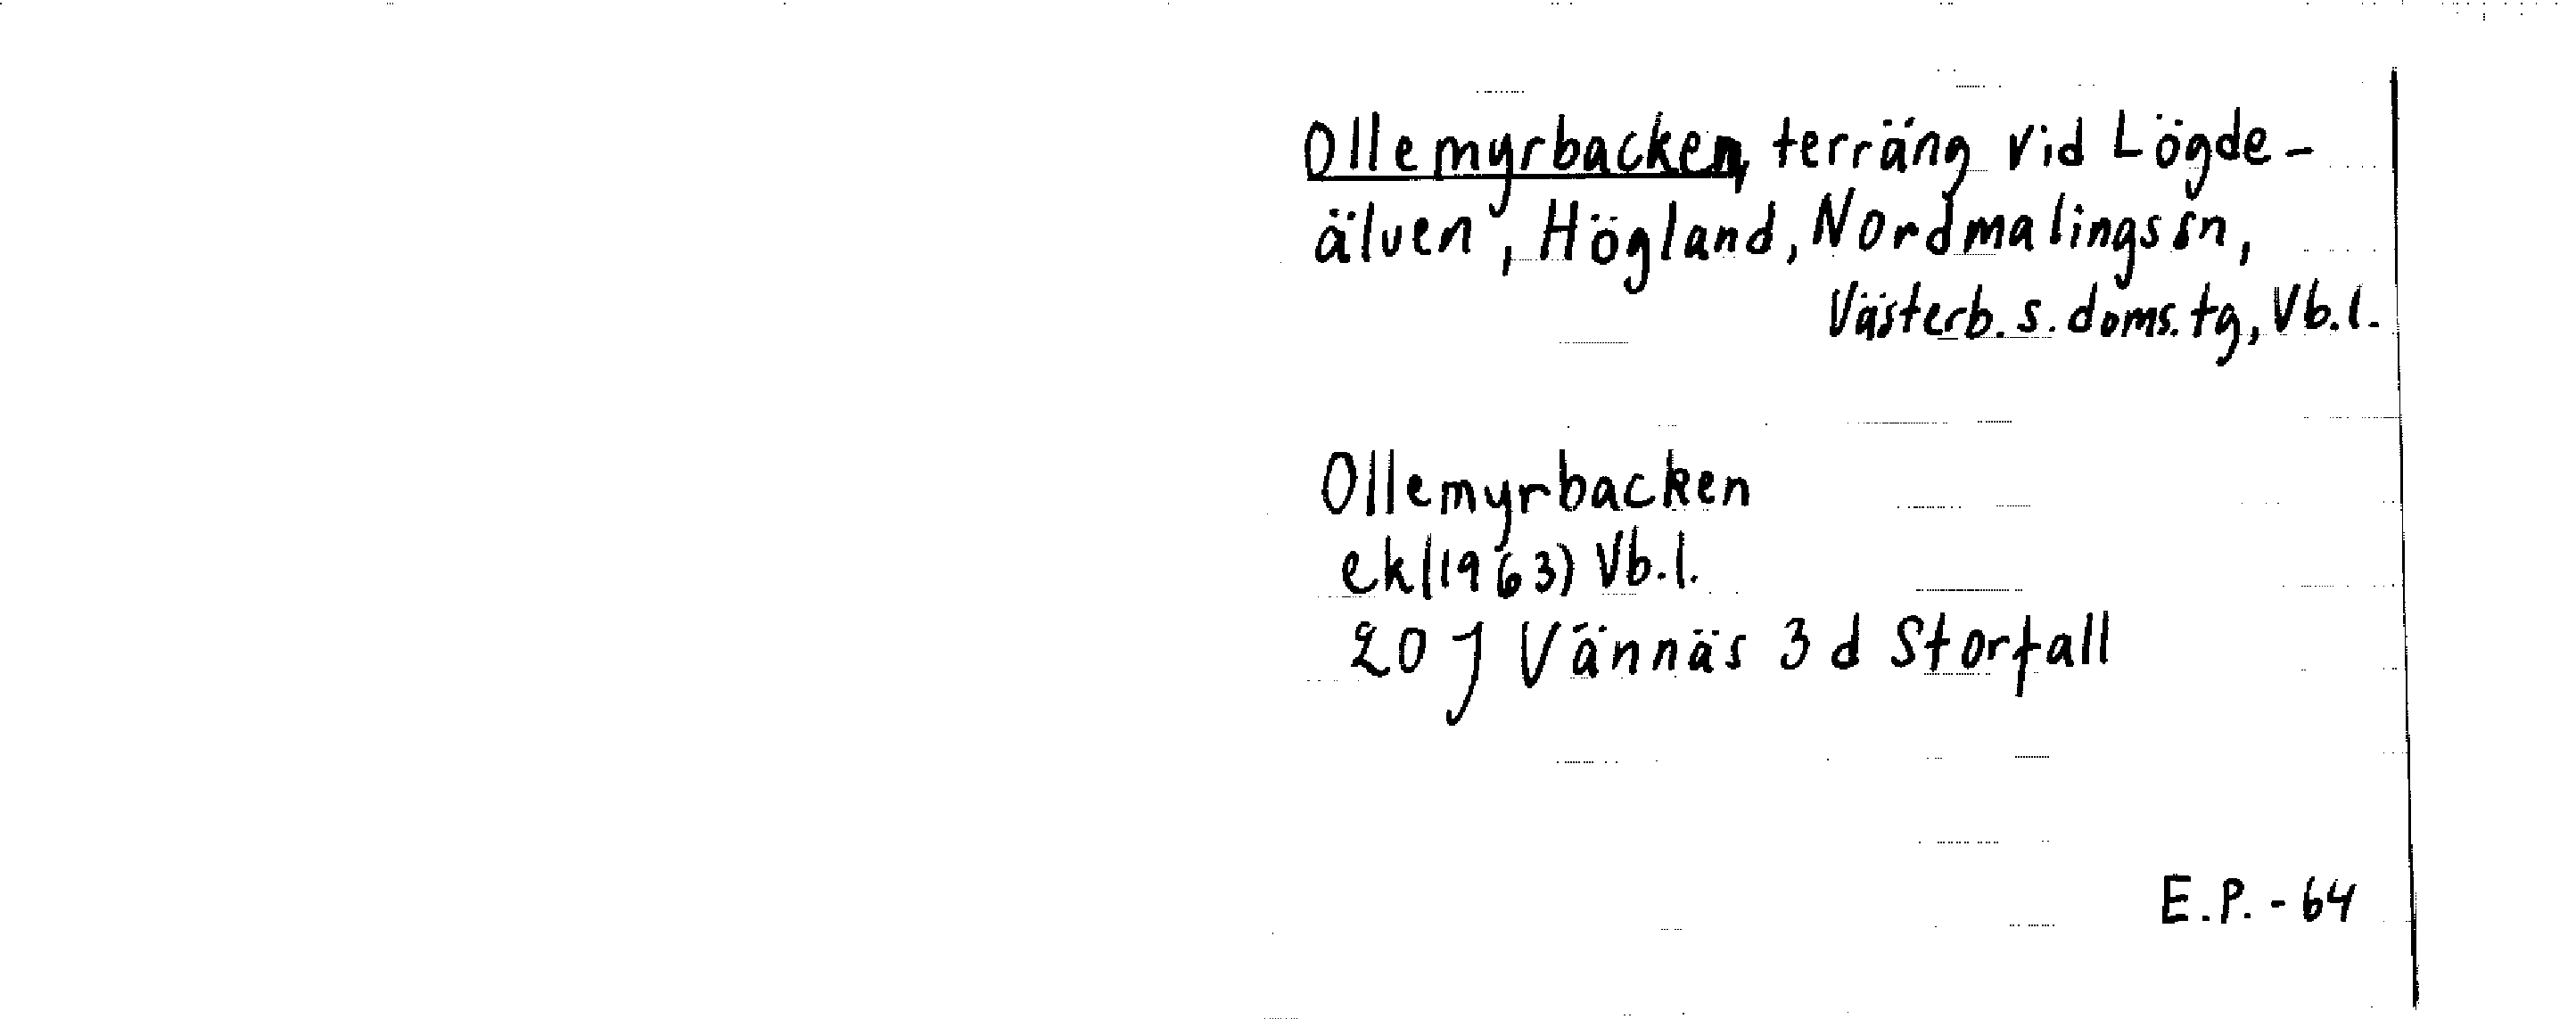 Ollemyrbacken, terräng vid Lögde-
älven, Högland, Nordmalings sn,
Västerb. s. doms. tg, Vb. l.
Ollemyrbacken
ek (1963) Vb. l.
20 J Vännäs 3 d Storfall
E.P. - 64